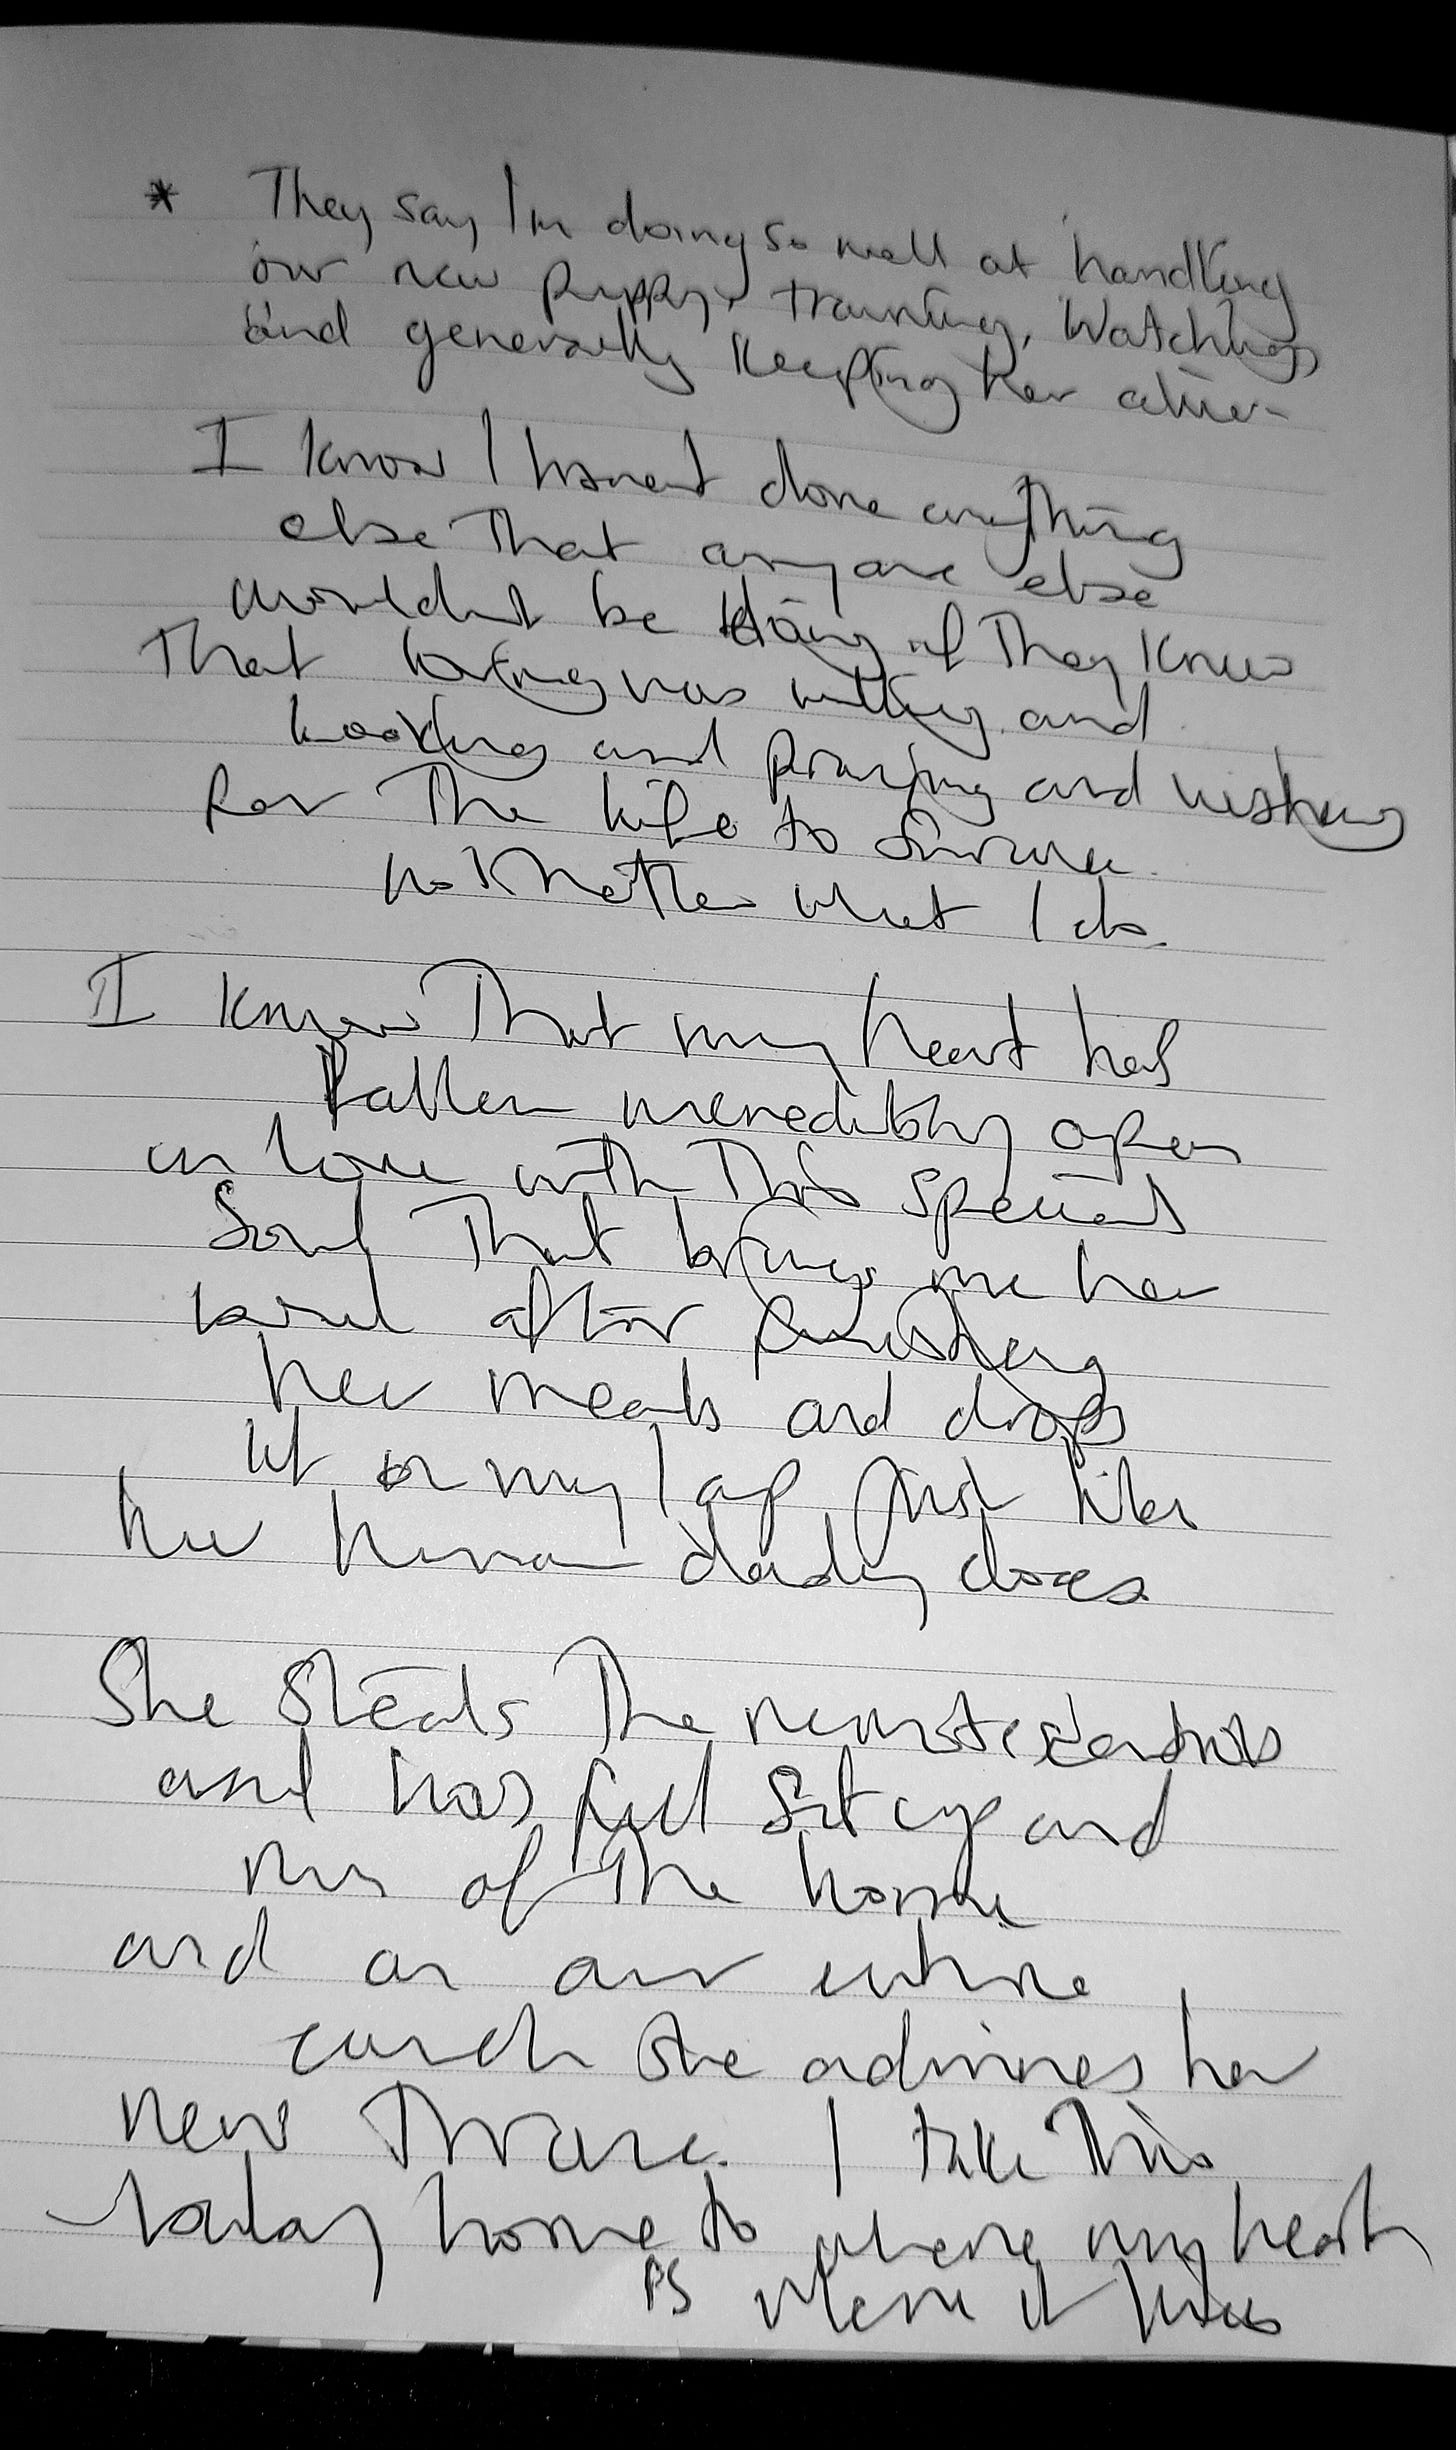 * They say I'm doing so well at handling
our new puppy, training, Watching
and generally keeping her alive.
I know I havent done anything
else that anyone else
wouldnt be doing if they knew
that loving was willing and
looking and praying and wishing
for the life to survive
no matter what I do.
I know that my heart has
fallen incredibly open
in love with this special
Soul that brings me her
bowl after finishing
her meals and drops
it on my lap just like
her human daddy does.
She steals the remote controls
and has full set up and
run of the home
and on our entire
couch she admires her
new Throne. I take this
today home to where my heart
PS where it lives